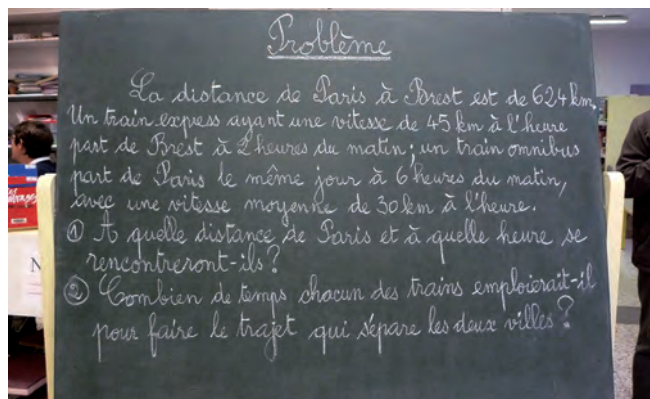 Problème
La distance de Paris à Brest est de 624 km.
Un train express ayant une vitesse de 45 km à l'heure
part de Brest à 2 heures du matin ; un train omnibus
part de Paris le même jour à 6 heures du matin,
avec une vitesse moyenne de 30 km à l'heure.
① A quelle distance de Paris et à quelle heure se
rencontreront-ils ?
② Combien de temps chacun des trains emploierait-il
pour faire le trajet qui sépare les deux villes ?
N